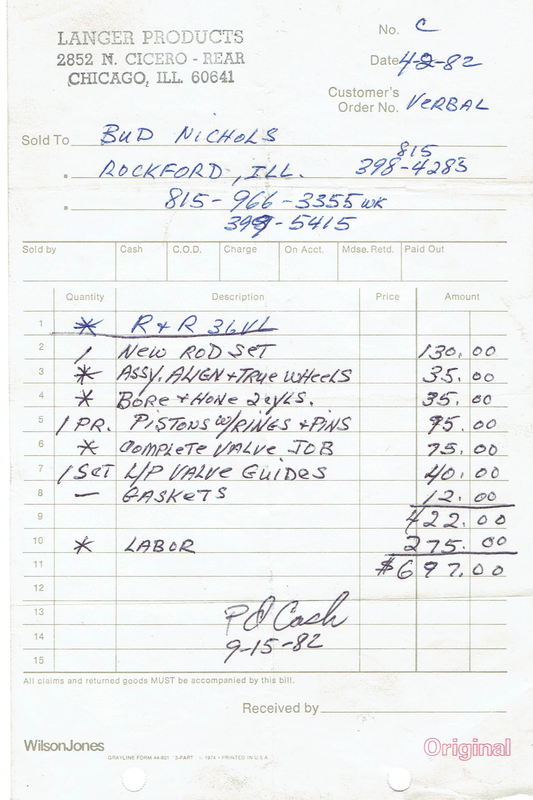 LANGER PRODUCTS
2852 N. CICERO - REAR
CHICAGO, ILL. 60641
No. C
Date 4-2-82
Customer's
Order No. VERBAL
Sold To BUD NICHOLS
815
ROCKFORD, ILL. 398-4283
815-966-3355 WK
399-5415
Sold by Cash C.O.D. Charge On Acct. Mdse. Retd. Paid Out
Quantity Description Price Amount
1 * R & R 36VL
2 1 NEW ROD SET 130.00
3 * ASSY. ALIGN + TRUE WHEELS 35.00
4 * BORE + HONE 2 CYLS. 35.00
5 1 PR. PISTONS W/RINGS + PINS 95.00
6 * COMPLETE VALVE JOB 75.00
7 1 SET L/P VALVE GUIDES 40.00
8 — GASKETS 12.00
9 422.00
10 * LABOR 275.00
11 $697.00
12
13 PD Cash
14 9-15-82
15
All claims and returned goods MUST be accompanied by this bill.
Received by
WilsonJones
GRAYLINE FORM 44-921 3-PART © 1974 • PRINTED IN U.S.A.
Original